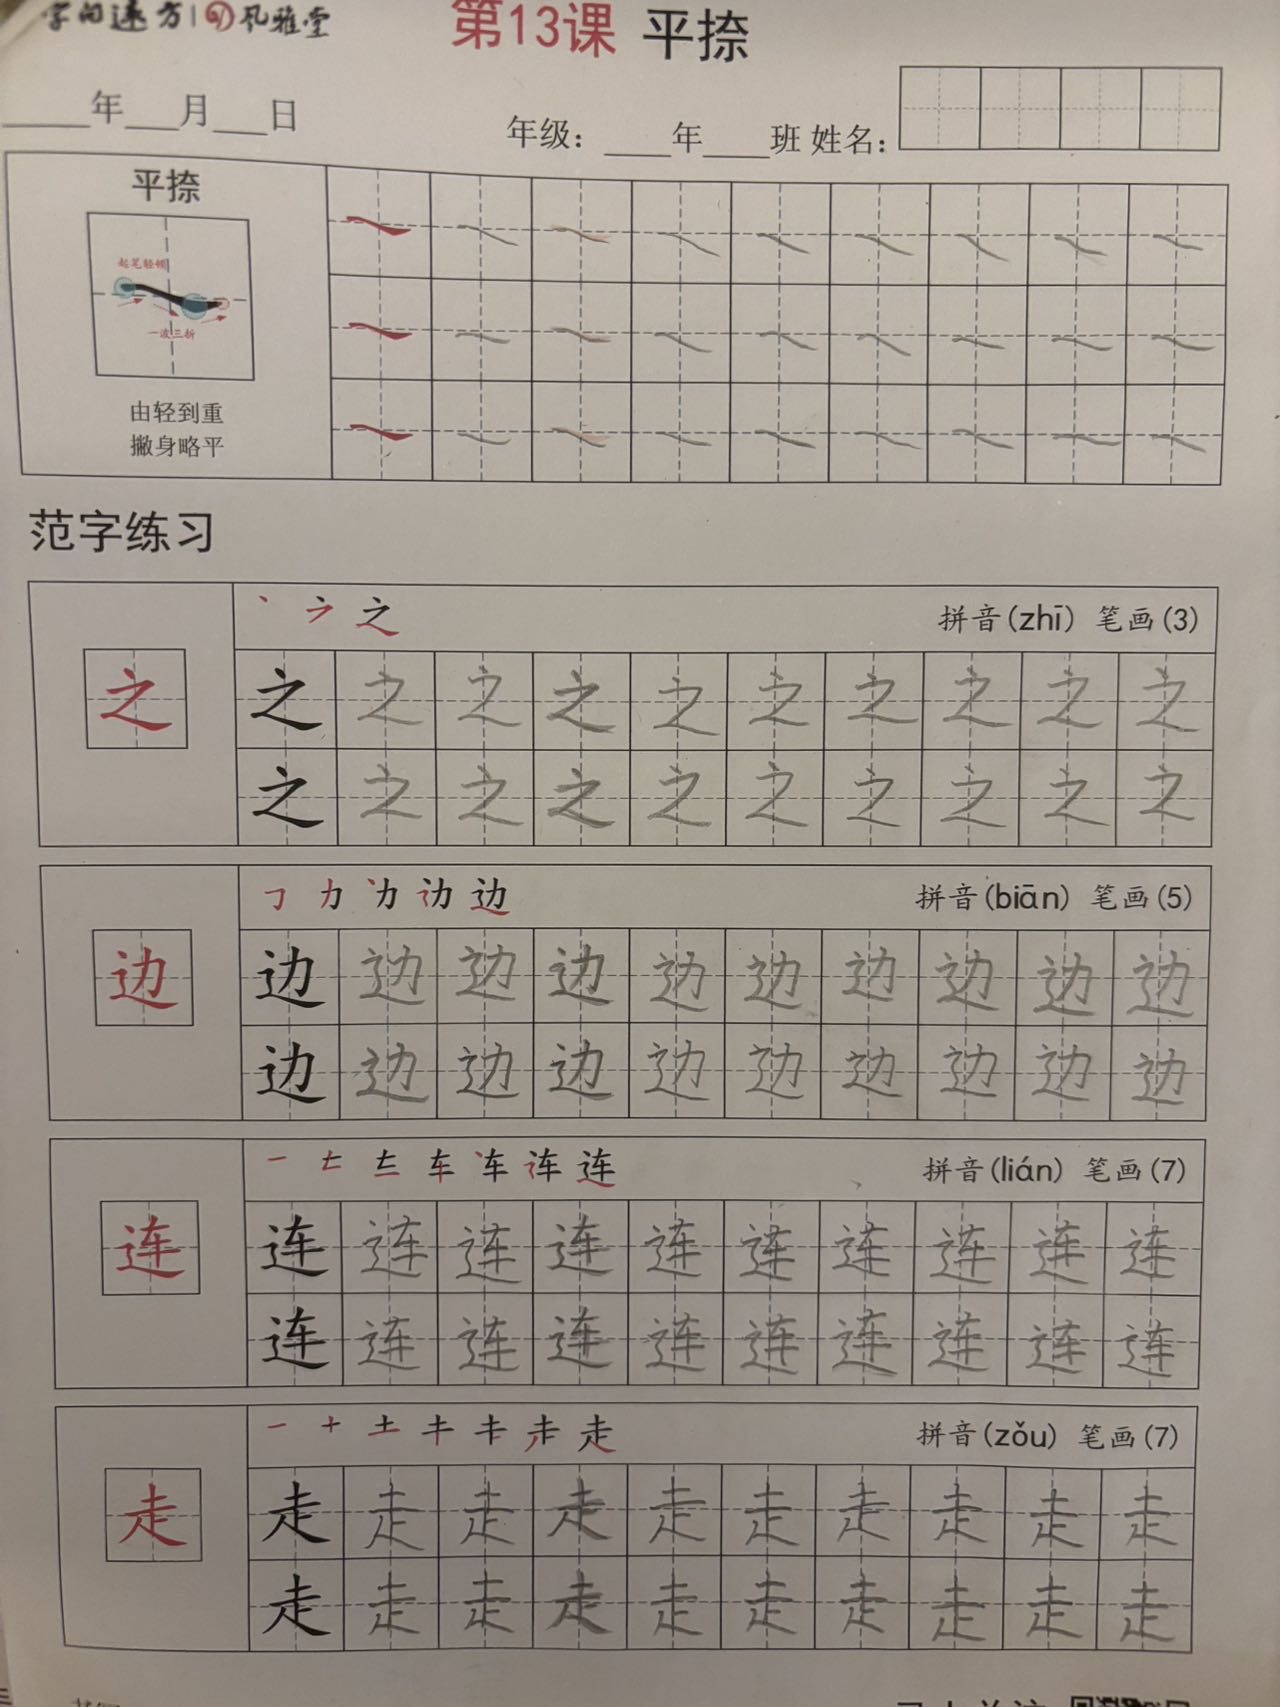 第13课 平捺
年 月 日
年级： 年 班 姓名：
平捺
起笔轻顿
一波三折
由轻到重
撇身略平
范字练习
之 拼音(zhī) 笔画(3)
之 之 之 之 之 之 之 之 之 之 之
之 之 之 之 之 之 之 之 之 之
力 边 拼音(biān) 笔画(5)
边 边 边 边 边 边 边 边 边 边 边
边 边 边 边 边 边 边 边 边 边
一 车 连 拼音(lián) 笔画(7)
连 连 连 连 连 连 连 连 连 连 连
连 连 连 连 连 连 连 连 连 连
一 十 土 走 拼音(zǒu) 笔画(7)
走 走 走 走 走 走 走 走 走 走 走
走 走 走 走 走 走 走 走 走 走